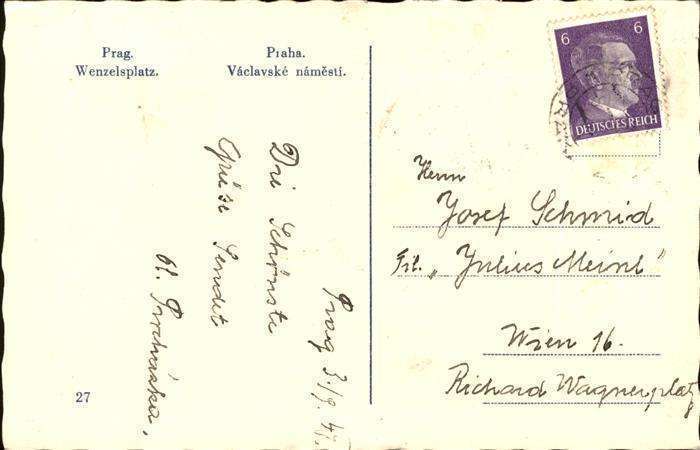 Prag.
Wenzelsplatz.
Praha.
Václavské náměstí.
6 6
DEUTSCHES REICH
Prag 3./9. 4
Die Schönste
Grüße Sendet
Herrn
Josef Schmid
Fil. „Julius Meinl“
Wien 16.
Richard Wagnerplatz
27